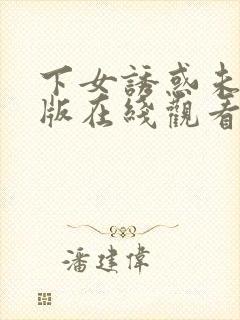 下女誘惑未
版在綫觀看
潘建偉